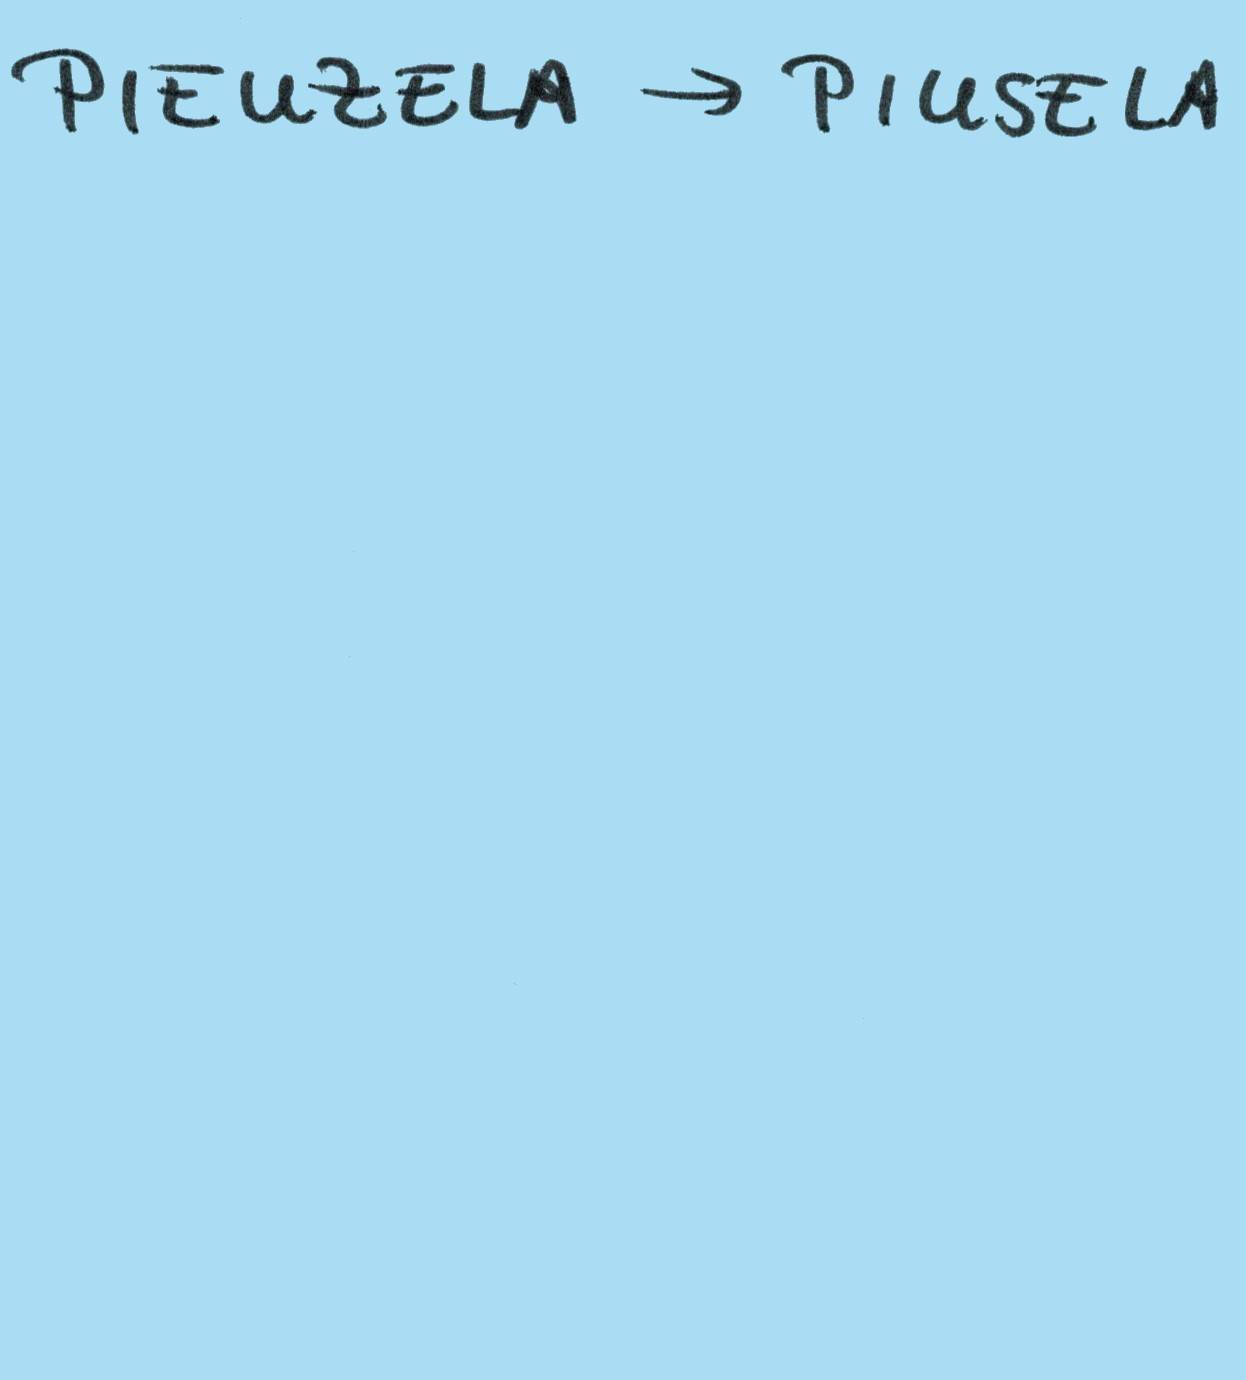 PIEUZELA → PIUSELA